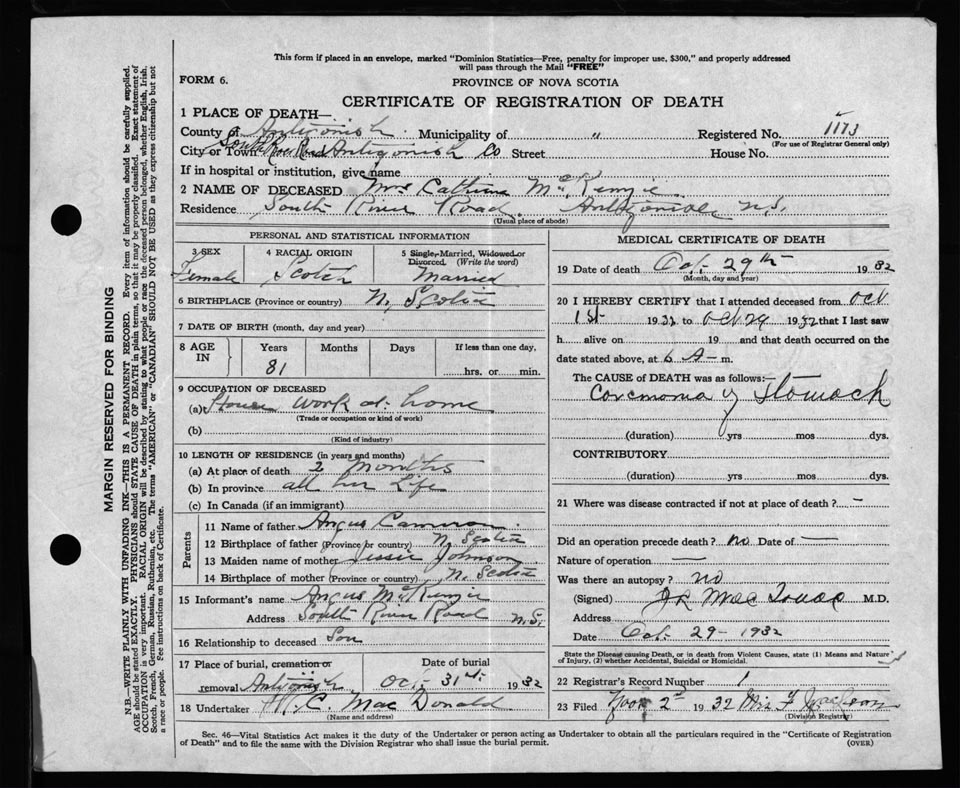 This form if placed in an envelope, marked "Dominion Statistics—Free, penalty for improper use, $300," and properly addressed
will pass through the Mail "FREE"
FORM 6.
PROVINCE OF NOVA SCOTIA
CERTIFICATE OF REGISTRATION OF DEATH
1 PLACE OF DEATH—
County of Antigonish Municipality of " Registered No. 1173
(For use of Registrar General only)
City or Town South River Road Antigonish Co Street House No.
If in hospital or institution, give name
2 NAME OF DECEASED Mrs Cathrine McKenzie
Residence South River Road Antigonish N.S.
(Usual place of abode)
PERSONAL AND STATISTICAL INFORMATION
3 SEX Female
4 RACIAL ORIGIN Scotch
5 Single, Married, Widowed or Divorced. (Write the word) Married
6 BIRTHPLACE (Province or country) N. Scotia
7 DATE OF BIRTH (month, day and year)
8 AGE IN Years Months Days If less than one day,
81 hrs. or min.
9 OCCUPATION OF DECEASED
(a) House work at home
(Trade or occupation or kind of work)
(b)
(Kind of industry)
10 LENGTH OF RESIDENCE (in years and months)
(a) At place of death 2 months
(b) In province all her Life
(c) In Canada (if an immigrant)
Parents
11 Name of father Angus Cameron
12 Birthplace of father (Province or country) N. Scotia
13 Maiden name of mother Jessie Johnson
14 Birthplace of mother (Province or country) N. Scotia
15 Informant's name Angus McKenzie
Address South River Road N.S.
16 Relationship to deceased Son
17 Place of burial, cremation or removal Antigonish
Date of burial Oct. 31st. 1932
18 Undertaker MacDonald
(Name and address)
MEDICAL CERTIFICATE OF DEATH
19 Date of death Oct. 29th 1932
(Month, day and year)
20 I HEREBY CERTIFY that I attended deceased from Oct
1st 1932 to Oct 29 1932 that I last saw
h alive on 19 and that death occurred on the
date stated above, at 6 A— m.
The CAUSE OF DEATH was as follows:—
of Stomach
(duration) yrs mos dys.
CONTRIBUTORY
(duration) yrs. mos. dys.
21 Where was disease contracted if not at place of death? —
Did an operation precede death? no Date of —
Nature of operation —
Was there an autopsy? no
(Signed) M.D.
Address
Date Oct. 29 - 1932
State the Disease causing Death, or in death from Violent Causes, state (1) Means and Nature
of Injury, (2) whether Accidental, Suicidal or Homicidal.
22 Registrar's Record Number 1
23 Filed 2nd 1932
(Division Registrar)
Sec. 46—Vital Statistics Act makes it the duty of the Undertaker or person acting as Undertaker to obtain all the particulars required in the "Certificate of Registration
of Death" and to file the same with the Division Registrar who shall issue the burial permit.
(OVER)
MARGIN RESERVED FOR BINDING
N.B.—WRITE PLAINLY WITH UNFADING INK—THIS IS A PERMANENT RECORD. Every item of information should be carefully supplied.
AGE should be stated EXACTLY. PHYSICIANS should STATE CAUSE OF DEATH in plain terms, so that it may be properly classified. Exact statement of
OCCUPATION is very important. RACIAL ORIGIN will be described by stating to what people or race the deceased person belonged, whether English, Irish,
Scotch, French, German, Russian, Ruthenian, etc. The terms "AMERICAN" or "CANADIAN" SHOULD NOT BE USED as they express citizenship but not
a race or people. Fee instructions on back of Certificate.